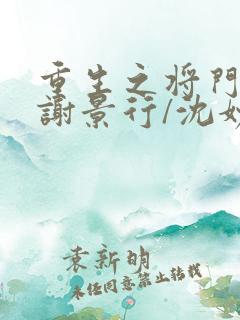 重生之将门
謝景行/沈妙
袁新明
未经同意禁止转载